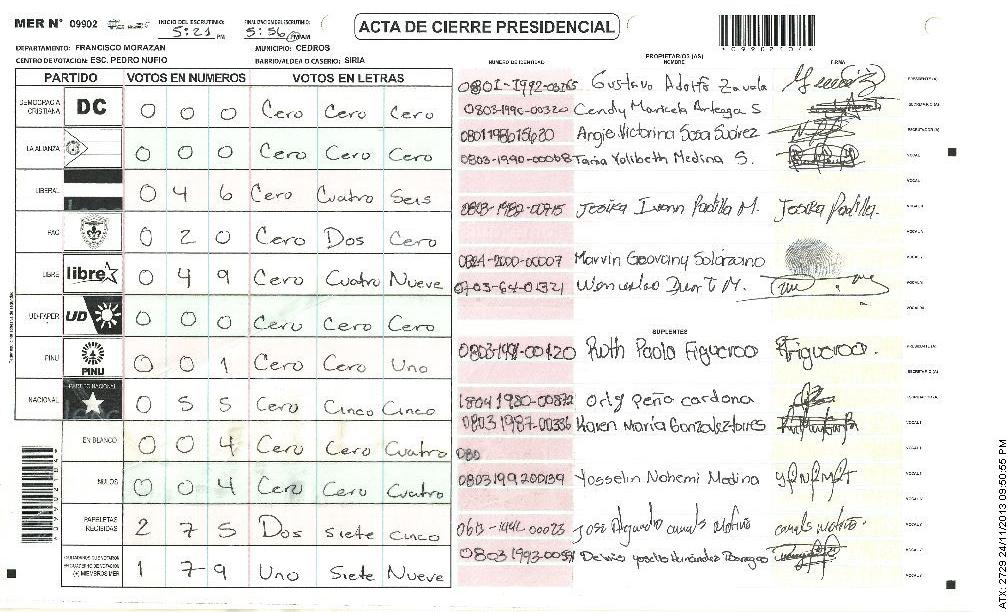 MER N° 09902
INICIO DEL ESCRUTINIO: 5:21 PM
FINALIZACION DEL ESCRUTINIO: 5:56 PM
ACTA DE CIERRE PRESIDENCIAL
DEPARTAMENTO: FRANCISCO MORAZAN MUNICIPIO: CEDROS
CENTRO DE VOTACION: ESC. PEDRO NUFIO BARRIO/ALDEA O CASERIO: SIRIA
PARTIDO VOTOS EN NUMEROS VOTOS EN LETRAS
DEMOCRACIA CRISTIANA DC 0 0 0 Cero Cero Cero
LA ALIANZA 0 0 0 Cero Cero Cero
LIBERAL 0 4 6 Cero Cuatro Seis
PAC 0 2 0 Cero Dos Cero
LIBRE libre 0 4 9 Cero Cuatro Nueve
UD-FAPER UD 0 0 0 Cero Cero Cero
PINU PINU 0 0 1 Cero Cero Uno
NACIONAL PARTIDO NACIONAL 0 5 5 Cero Cinco Cinco
EN BLANCO 0 0 4 Cero Cero Cuatro
NULOS 0 0 4 Cero Cero Cuatro
PAPELETAS RECIBIDAS 2 7 5 Dos siete cinco
(+) MIEMBROS MER 1 7 9 Uno Siete Nueve
NUMERO DE IDENTIDAD PROPIETARIOS (AS) NOMBRE FIRMA
Gustavo Adolfo Zavala PRESIDENTE (A)
0803-1990-00320 Cendy Maricela Arteaga S SECRETARIO (A)
0801198615620 Angie Victorina Sosa Suarez ESCRUTADOR (A)
0803-1990-00068 Tania Yolibeth Medina S. VOCAL
0803-1982-00715 Jesika Ivonn Padilla M. Jesika Padilla.
0824-2000-00007 Marvin Geovany Solorzano
0703-64-01321
SUPLENTES
0803-1991-00420 Ruth Paola Figueroa Figueroa. PRESIDENTE (A)
SECRETARIO (A)
18041980-00872 Orly Peña cardona
08031987-00336 Karen Maria Gonzalez torres
080
0803199200139 Yosselin Nohemi Medina
ATX: 2729 24/11/2013 09:50:55 PM